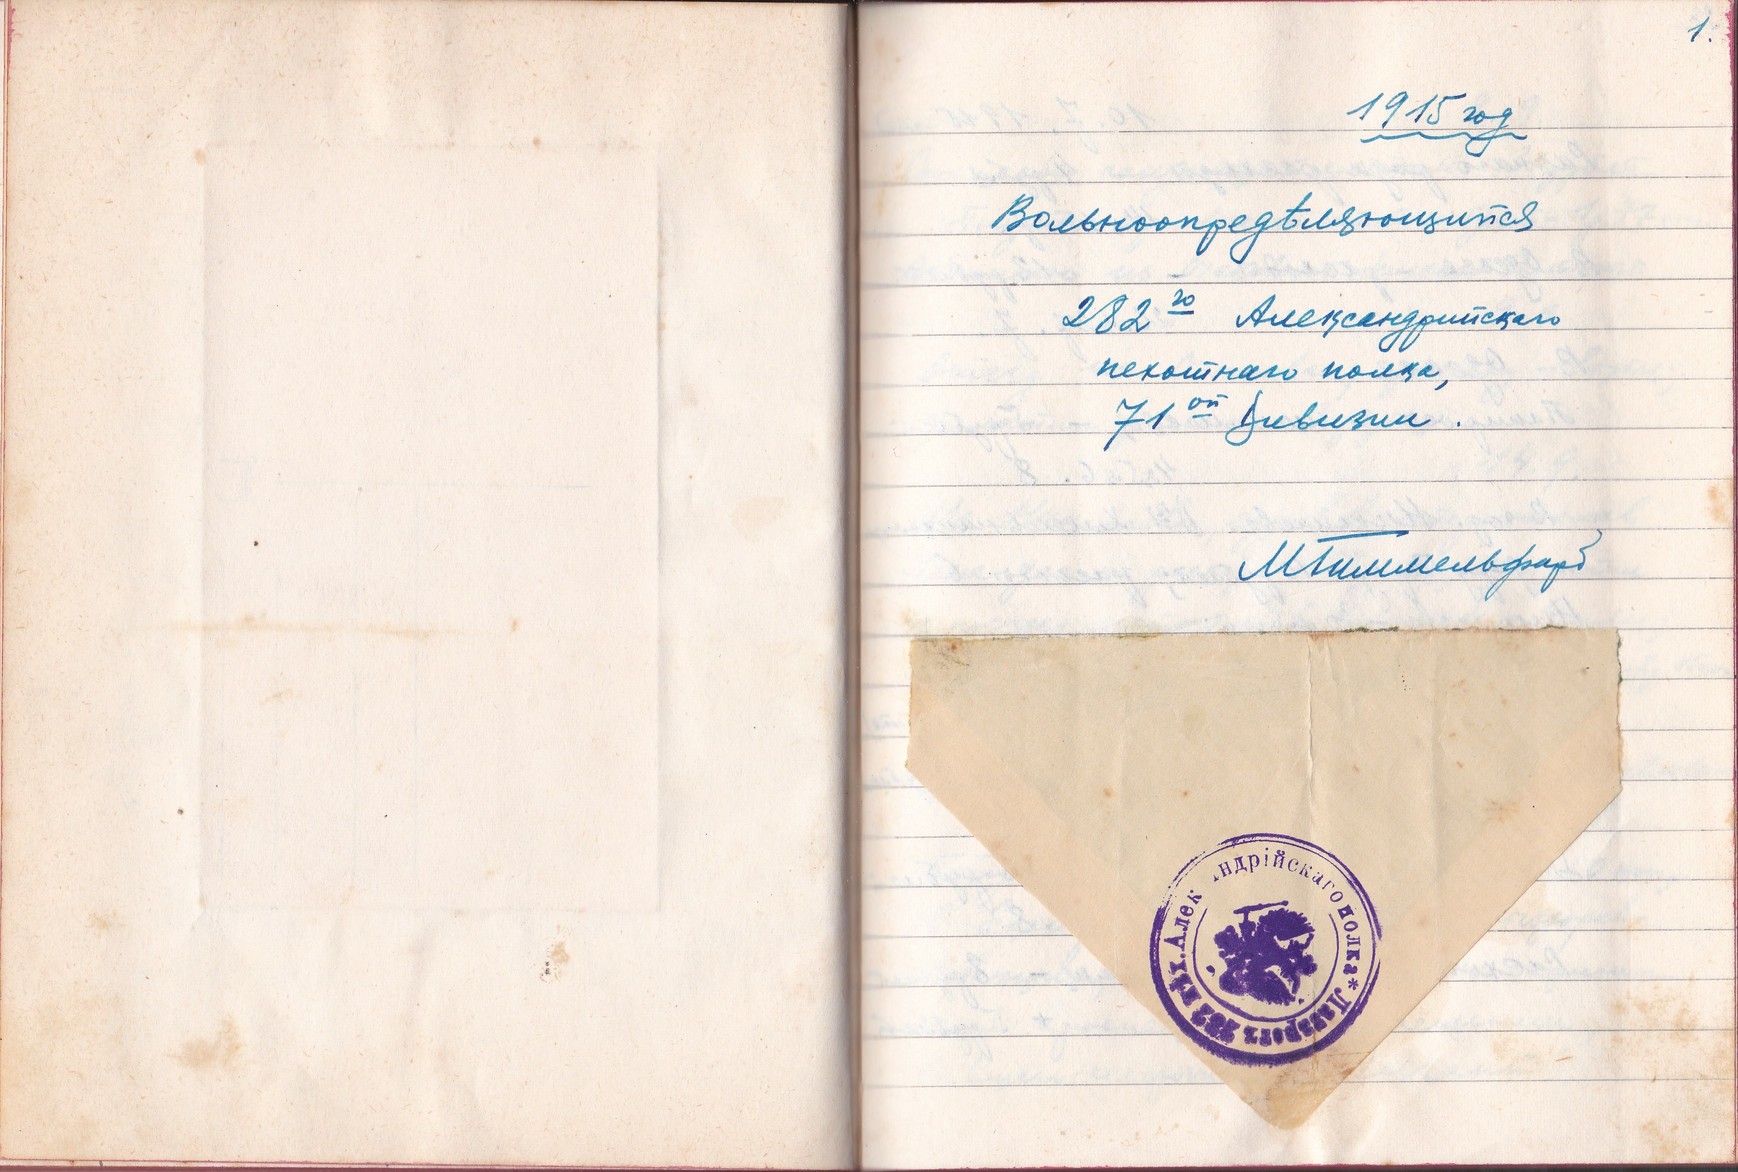 1.
1915 год
Вольноопредѣляющійся
282го Александрійскаго
пехотнаго полка,
71ой дивизии.
МГиммельфарб
Лазаретъ 282 пѣх. Алек ндрійскаго полка *